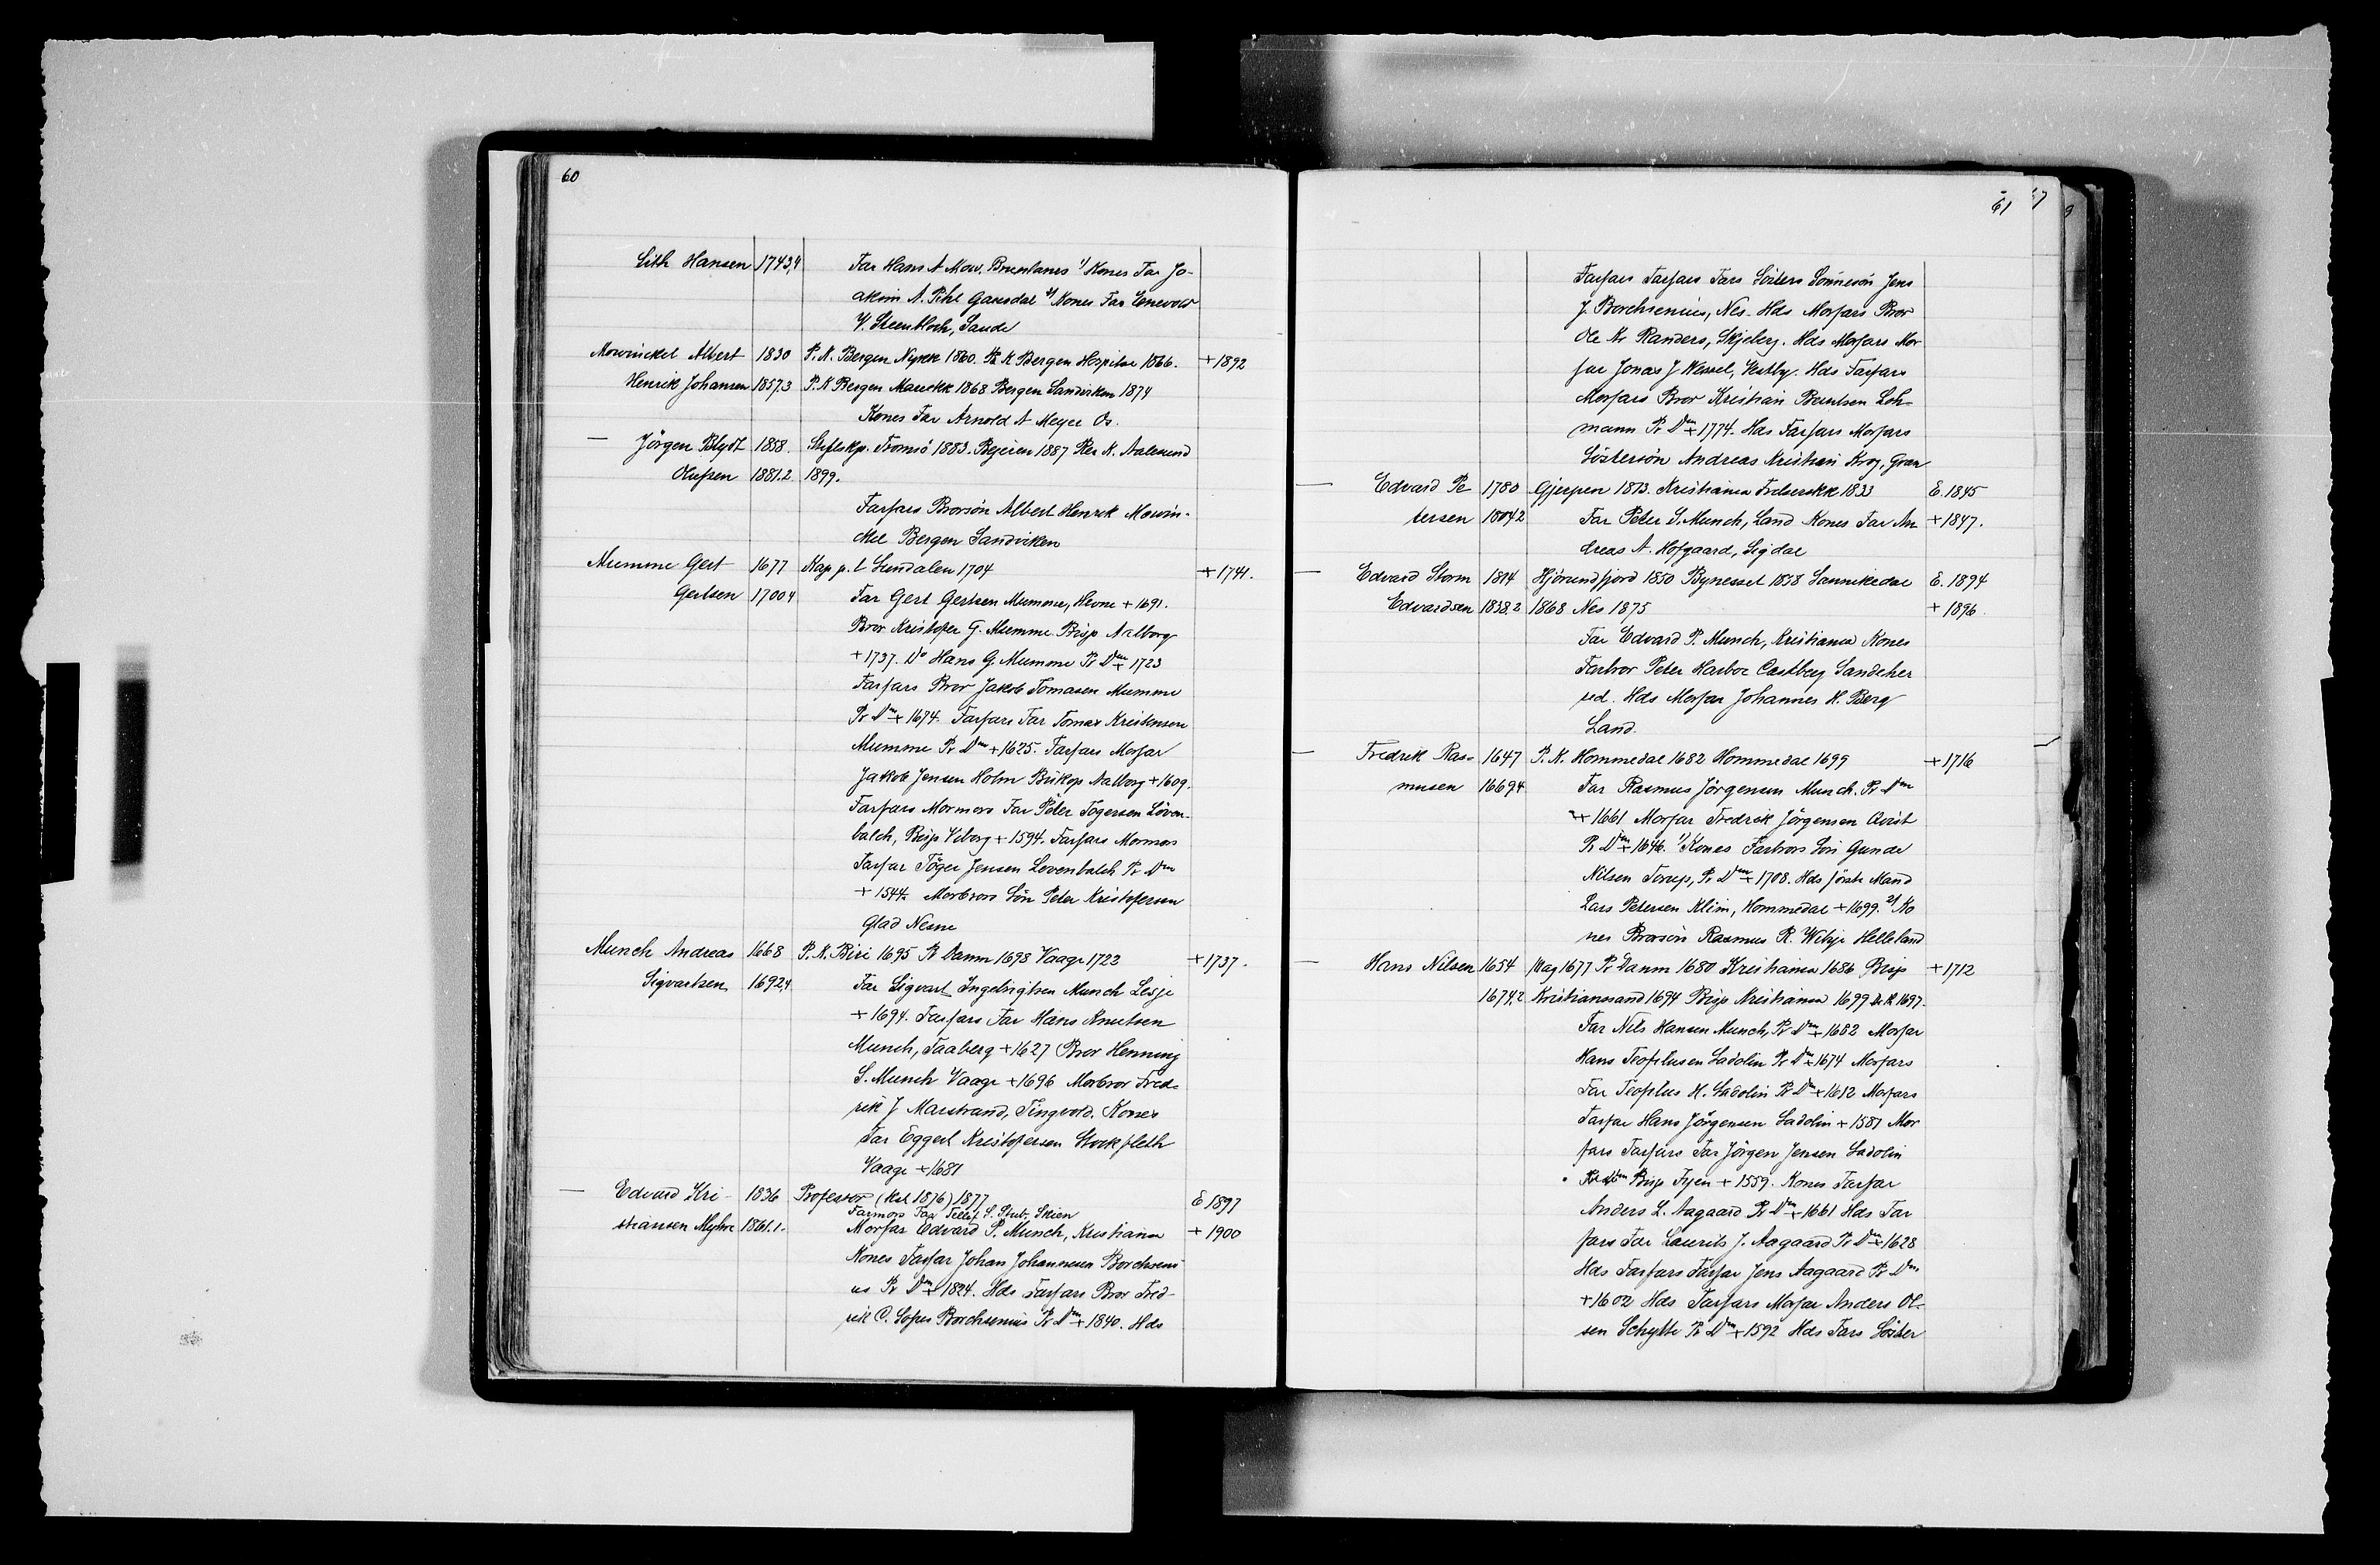 60
Lith Hansen 1743,4 Far Hans A Mow. Brunlanes 1/ Kones Far Jo-
akim A. Pihl Gausdal 2/ Kones Far Enevold
V. Steenbloch, Sande
Mowinckel Albert 1830 P. K. Bergen Nykk 1860. Rk K Bergen Hospital 1866. + 1892
Henrik Johansen 1857.3 P. K Bergen Mariekk 1868 Bergen Sandviken 1874
Kones Far Arnold A Meyer Os.
— Jörgen Blydt 1858. Stiftskp. Tromsö 1883. Beieren 1887 Res K. Aalesund
Olufsen 1881.2. 1899.
Farfars Brorsön Albert Henrik Mowin-
ckel Bergen Sandviken
Mumme Gert 1677 Kap p. t Sundalen 1704 + 1741.
Gertsen 1700 4 Far Gert Gertsen Mumme, Hevne + 1691.
Bror Kristofer G. Mumme Bisp Aalborg
+ 1737. Do Hans G. Mumme Pr Dm + 1723
Farfars Bror Jakob Tomasen Mumme
Pr Dm + 1674. Farfars Far Tomas Kristensen
Mumme Pr Dm + 1625. Farfars Morfar
Jakob Jensen Holm Biskop Aalborg + 1609.
Farfars Mormors Far Peter Tögersen Löven-
balch, Bisp Viborg + 1594. Farfars Mormors
Farfar Töger Jensen Lovenbalch Pr Dm
+ 1544. Morbrors Sön Peter Kristofersen
Glad Nesne
Munch Andreas 1668 P. K. Biri 1695 Pr Danm 1698 Vaage 1723 + 1737.
Sigvartsen 1692,4 Far Sigvart Ingebrigtsen Munch Lesje
+ 1694. Farfars Far Hans Knutsen
Munch, Faaberg + 1627 Bror Henning
S. Munch Vaage + 1696 Morbror Fred-
rik J Marstrand, Tingvold. Kones
Far Eggert Kristofersen Stockfleth
Vaage + 1681
— Edvard Kri- 1836 Professor (Kst 1876) 1877 E 1897
Farmors Far Tellef S. Stub, Skien
stiansen Myhre 1861.1. Morfar Edvard P. Munch, Kristiania + 1900
Kones Farfar Johan Johannesen Borchseni-
us Pr Dm + 1824. Hds Farfars Bror Fred-
rik C. Sofus Borchsenius Pr Dm + 1840. Hds
61
Farfars Farfars Fars Sösters Sönnesön Jens
J. Borchsenius, Nes. Hds Morfars Bror
Ole Kr Randers, Skjeberg. Hds Morfars Mor
far Jonas J Wessel, Vestby. Hds Farfars
Morfars Bror Kristian Berntsen Loh-
mann Pr Dm + 1774. Hds Farfars Morfars
Söstersön Andreas Kristian Krog, Gran
— Edvard Pe 1780 Gjerpen 1813. Kristiania Frelserskk 1833 E. 1845
tersen 1804 2 Far Peter S. Munch, Land Kones Far An + 1847.
dreas A. Hofgaard, Sigdal
— Edvard Storm 1814 Hjörundfjord 1850 Bynesset 1858 Sannikedal E. 1894
Edvardsen 1838.2 1868 Nes 1875 + 1896.
Far Edvard P. Munch, Kristiania Kones
Farbror Peter Harboe Castberg Sandeher
red. Hds Morfar Johannes H. Berg
Land.
— Fredrik Ras- 1647 P. K. Hommedal 1682 Hommedal 1699 + 1716
musen 1669,4 Far Rasmus Jörgensen Munch. Pr Dm
+ 1661 Morfar Fredrik Jörgensen Qvist
Pr Dm + 1646. 1/ Kones Farbrors Sön Gunde
Nilsen Torup, Pr Dm + 1708. Hds förste Mand
Lars Petersen Klim, Hommedal + 1699. 2/ Ko
nes Brorsön Rasmus R. Wibje Helleland
— Hans Nilsen 1654 Mag 1677 Pr Danm 1680 Kristiania 1686 Bisp + 1712
1674,2 Kristianssand 1694 Bisp Kristiania 1699 Dr. R. 1697.
Far Nils Hansen Munch, Pr Dm + 1682 Morfar
Hans Teofilusen Sadolin Pr Dm + 1674 Morfars
Far Teofilus H. Sadolin Pr Dm + 1612 Morfars
Farfar Hans Jörgensen Sadolin + 1587 Mor
fars Farfars Far Jörgen Jensen Sadolin
Bisp Fyen + 1559. Kones Farfar
Anders L. Aagaard Pr Dm + 1661 Hds Far
fars Far Laurits J. Aagaard Pr Dm + 1628
Hds Farfars Farfar Jens Aagaard Pr Dm
+ 1602 Hds Farfars Morfar Anders Ol-
sen Schytte Pr Dm + 1592 Hds Fars Söster